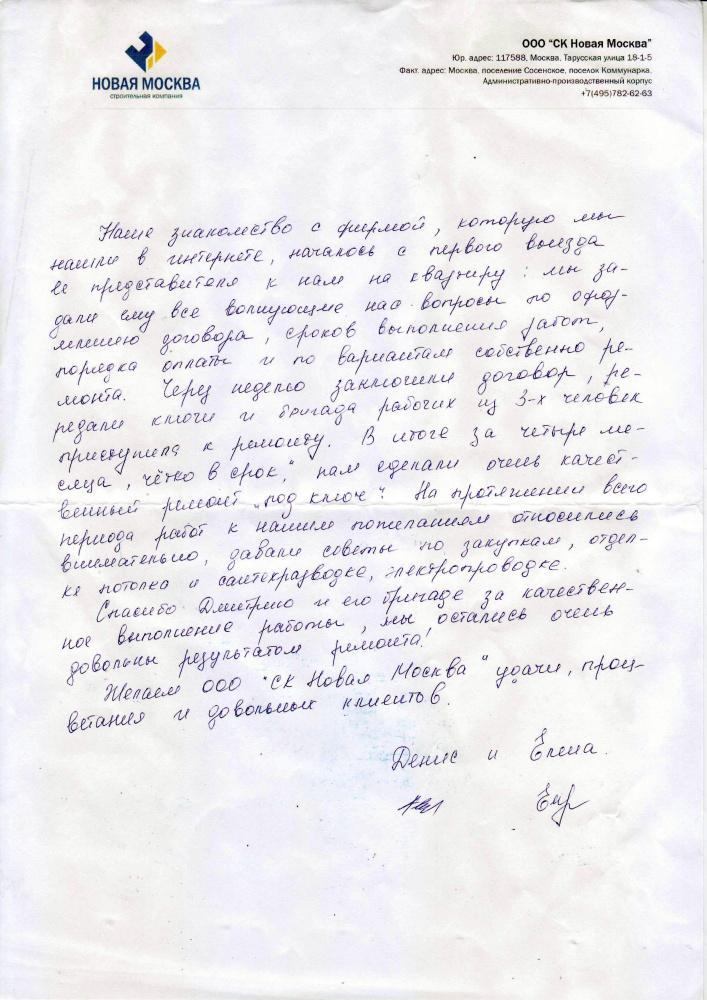 НОВАЯ МОСКВА
строительная компания
ООО "СК Новая Москва"
Юр. адрес: 117588, Москва, Тарусская улица 18-1-5
Факт. адрес: Москва, поселение Сосенское, поселок Коммунарка,
Административно-производственный корпус
+7(495)782-62-63
Наше знакомство с фирмой, которую мы
нашли в интернете, началось с первого выезда
ее представителя к нам на квартиру: мы за-
дали ему все волнующие нас вопросы по офор-
млению договора, сроков выполнения работ,
порядка оплаты и по вариантам собственно ре-
монта. Через неделю заключили договор, пе-
редали ключи и бригада рабочих из 3-х человек
приступила к ремонту. В итоге за четыре ме-
сяца, "чётко в срок," нам сделали очень качест-
венный ремонт "под ключ". На протяжении всего
периода работ к нашим пожеланиям относились
внимательно, давали советы по закупкам, отдел-
ке потолка и сантехразводке, электропроводке.
Спасибо Дмитрию и его бригаде за качествен-
ное выполнение работы, мы остались очень
довольны результатом ремонта!
Желаем ООО "СК Новая Москва" удачи, проц-
ветания и довольных клиентов.
Денис и Елена.